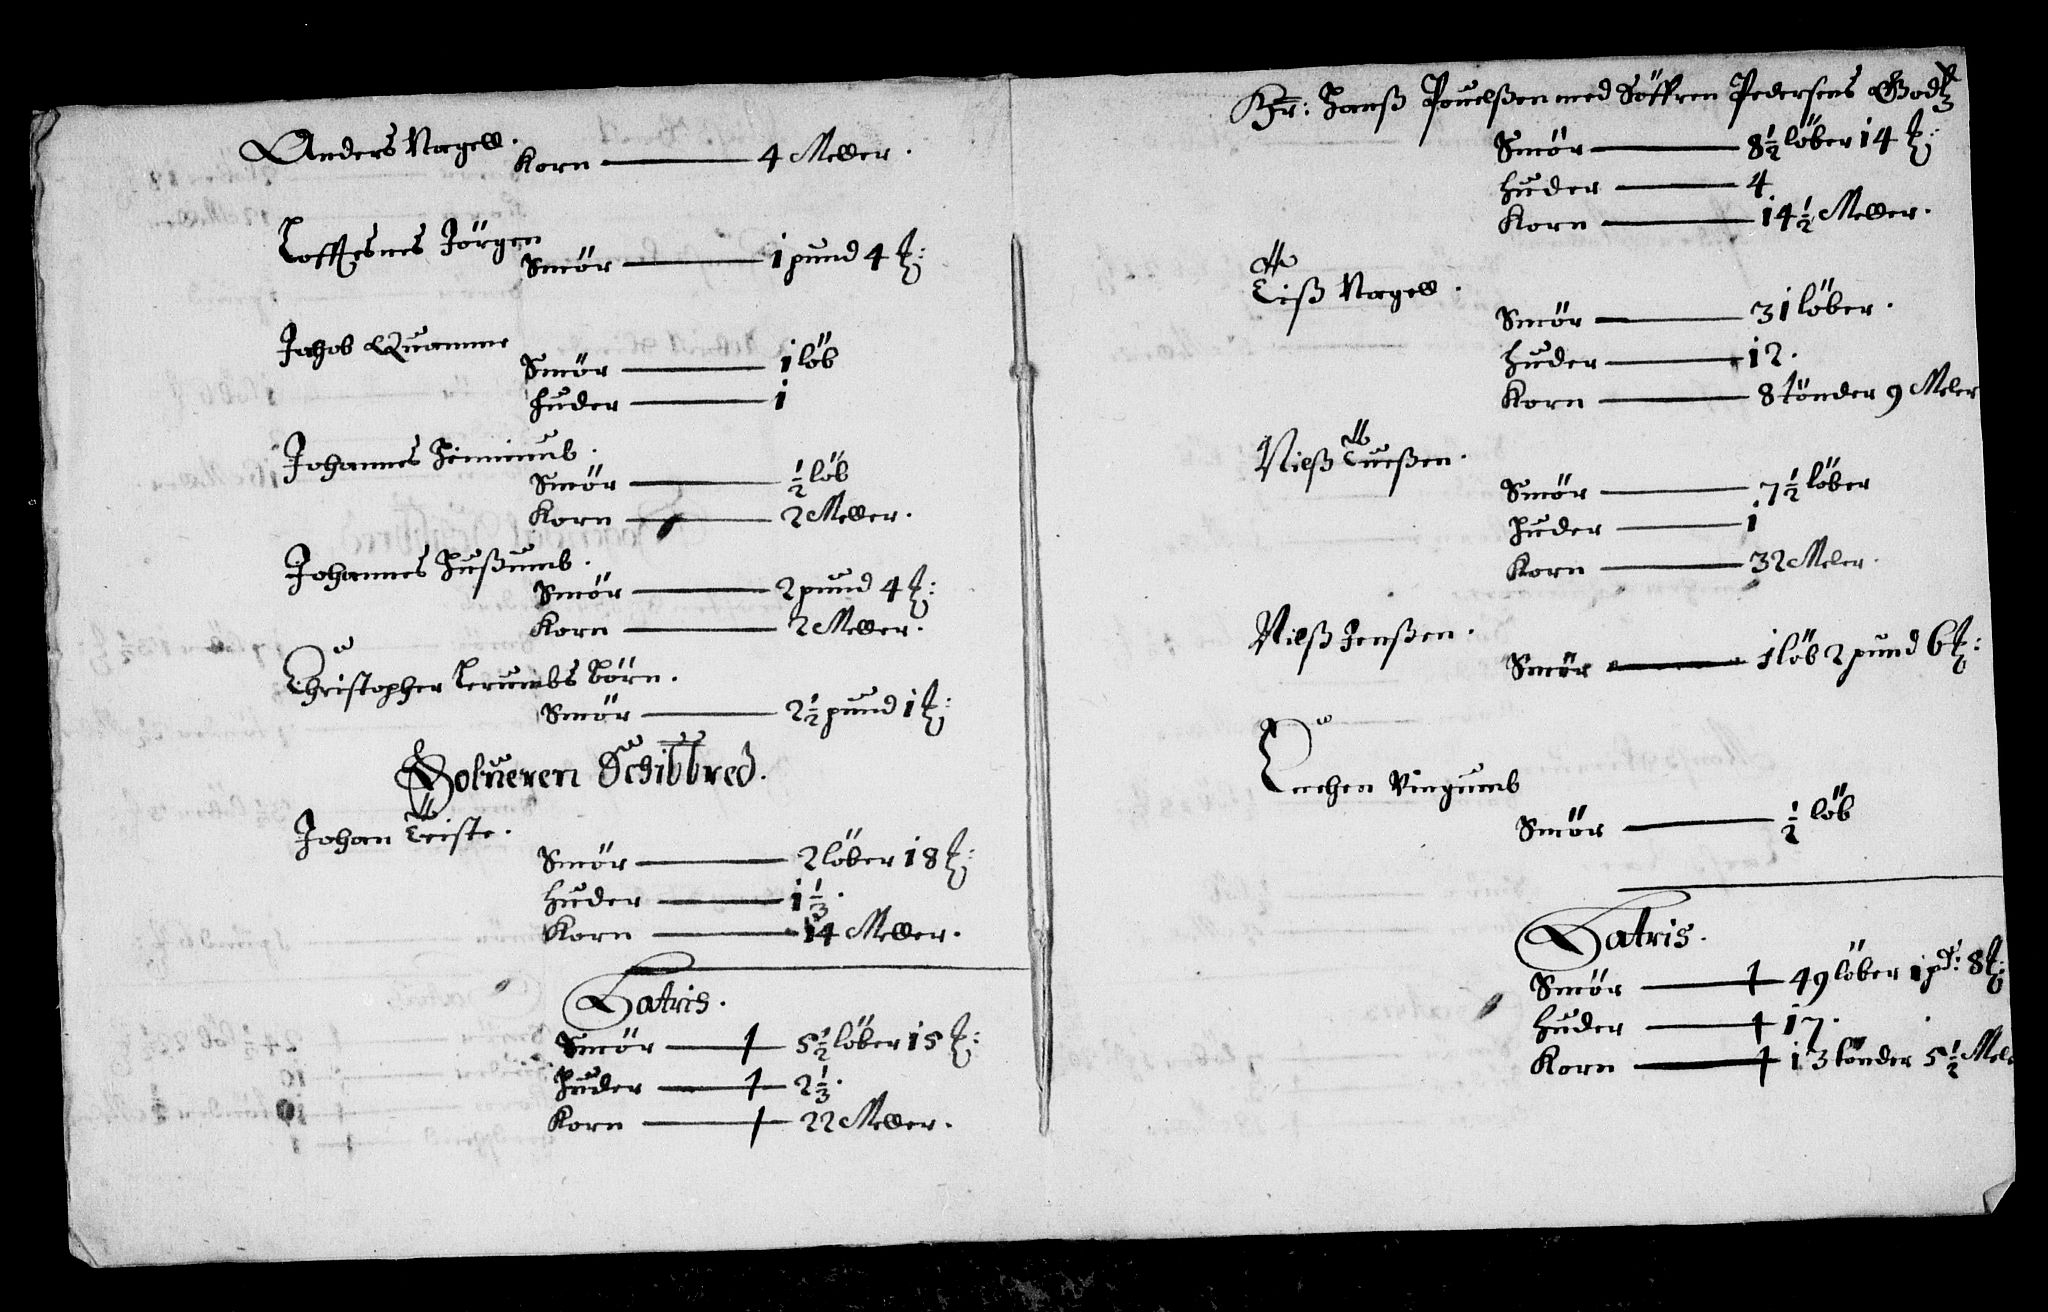 Anders Nagell.
Korn — 4 Meller.
Loftesnes Jörgen
Smör — 1 pund 4 ℔:
Jachob Quamme
Smör — 1 löb
Huder — 1
Johannes Himmumb.
Smör — ½ löb
Korn — 2 Meller.
Johannes Hußumb.
Smör — 2 pund 4 ℔:
Korn — 2 Meller.
Christopher Lerumbs börn.
Smör — 2½ pund 1 ℔:
Solueren Schibbred.
Johan Teiste.
Smör — 2 löber 18 ℔:
Huder — 1 ⅓.
Korn — 14 Meller.
Latris.
Smör — 5½ löber 15 ℔:
Huder — 2 ⅓.
Korn — 22 Meller.
Hr: Hanß Pouelßen med Söffren Pedersens Godß
Smör — 8½ löber 14 ℔:
Huder — 4
Korn — 14½ Meller.
Liß Nagell.
Smör — 31 löber.
Huder — 12.
Korn — 8 tönder 9 Meler
Nielß Lueßen.
Smör — 7½ löber
Huder — 1
Korn — 32 Meler.
Nielß Jenßen.
Smör — 1 löb 2 pund 6 ℔:
Encken Vingumb
Smör — ½ löb
Latris.
Smör — 49 löber 1 pd: 8 ℔:
Huder — 17.
Korn — 13 tönder 5½ Mele